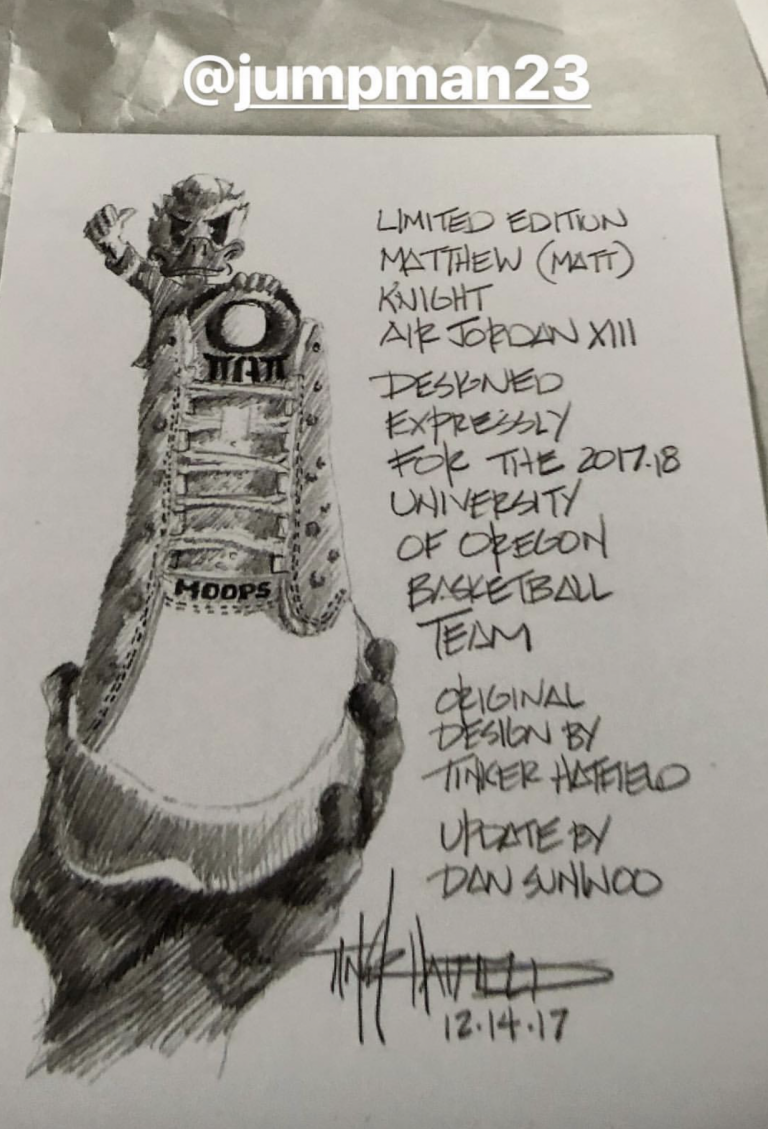 @jumpman23
LIMITED EDITION
MATTHEW (MATT)
KNIGHT
AIR JORDAN XIII
DESIGNED
EXPRESSLY
FOR THE 2017.18
UNIVERSITY
OF OREGON
BASKETBALL
TEAM
ORIGINAL
DESIGN BY
TINKER HATFIELD
UPDATE BY
DAN SUNWOO
MOOPS
TINKER HATFIELD
12.14.17